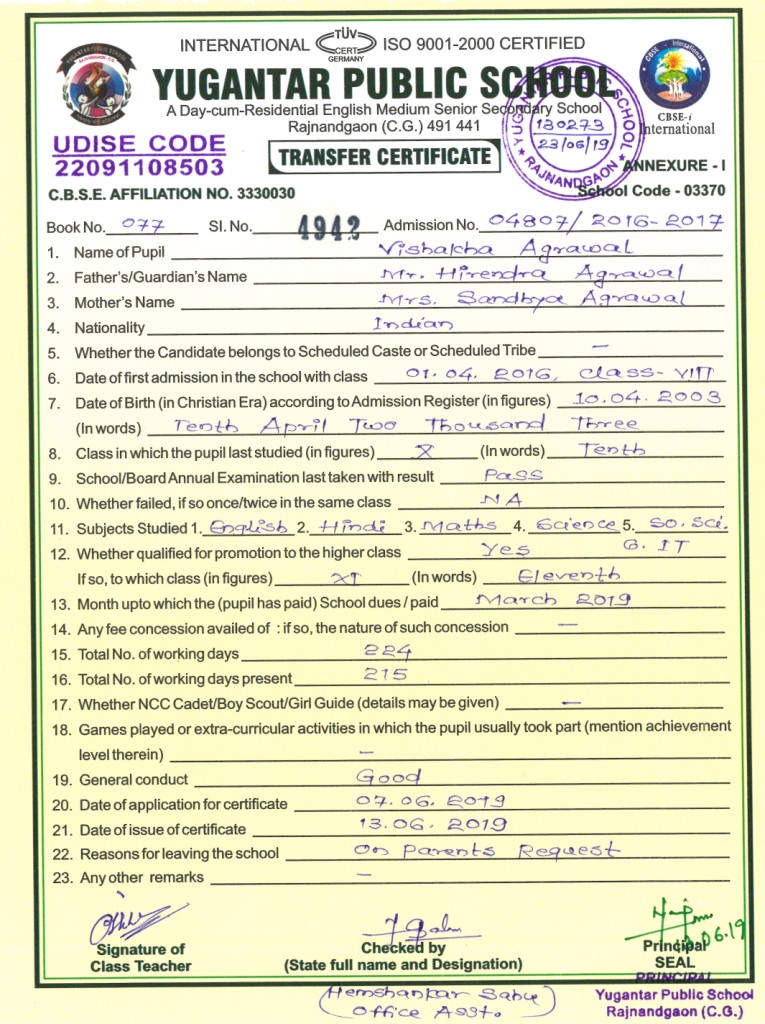 INTERNATIONAL TÜV CERT GERMANY ISO 9001-2000 CERTIFIED
YUGANTAR PUBLIC SCHOOL
A Day-cum-Residential English Medium Senior Secondary School
Rajnandgaon (C.G.) 491 441
CBSE-i
International
UDISE CODE
22091108503
TRANSFER CERTIFICATE
130273
23/06/19
RAJNANDGAON
ANNEXURE - I
C.B.S.E. AFFILIATION NO. 3330030 School Code - 03370
Book No. 077 Sl. No. 4942 Admission No. 04807/2016-2017
1. Name of Pupil Vishakha Agrawal
2. Father's/Guardian's Name Mr. Hirendra Agrawal
3. Mother's Name Mrs. Sandhya Agrawal
4. Nationality Indian
5. Whether the Candidate belongs to Scheduled Caste or Scheduled Tribe —
6. Date of first admission in the school with class 01.04.2016, Class-VIII
7. Date of Birth (in Christian Era) according to Admission Register (in figures) 10.04.2003
(In words) Tenth April Two Thousand Three
8. Class in which the pupil last studied (in figures) X (In words) Tenth
9. School/Board Annual Examination last taken with result Pass
10. Whether failed, if so once/twice in the same class NA
11. Subjects Studied 1. English 2. Hindi 3. Maths 4. Science 5. So. Sci.
12. Whether qualified for promotion to the higher class Yes 6. IT
If so, to which class (in figures) XI (In words) Eleventh
13. Month upto which the (pupil has paid) School dues / paid March 2019
14. Any fee concession availed of : if so, the nature of such concession —
15. Total No. of working days 224
16. Total No. of working days present 215
17. Whether NCC Cadet/Boy Scout/Girl Guide (details may be given) —
18. Games played or extra-curricular activities in which the pupil usually took part (mention achievement
level therein) —
19. General conduct Good
20. Date of application for certificate 07.06.2019
21. Date of issue of certificate 13.06.2019
22. Reasons for leaving the school On Parents Request
23. Any other remarks —
Signature of Checked by Principal
Class Teacher (State full name and Designation) SEAL
PRINCIPAL
(Hemshankar Sahu) Yugantar Public School
Office Asst. Rajnandgaon (C.G.)